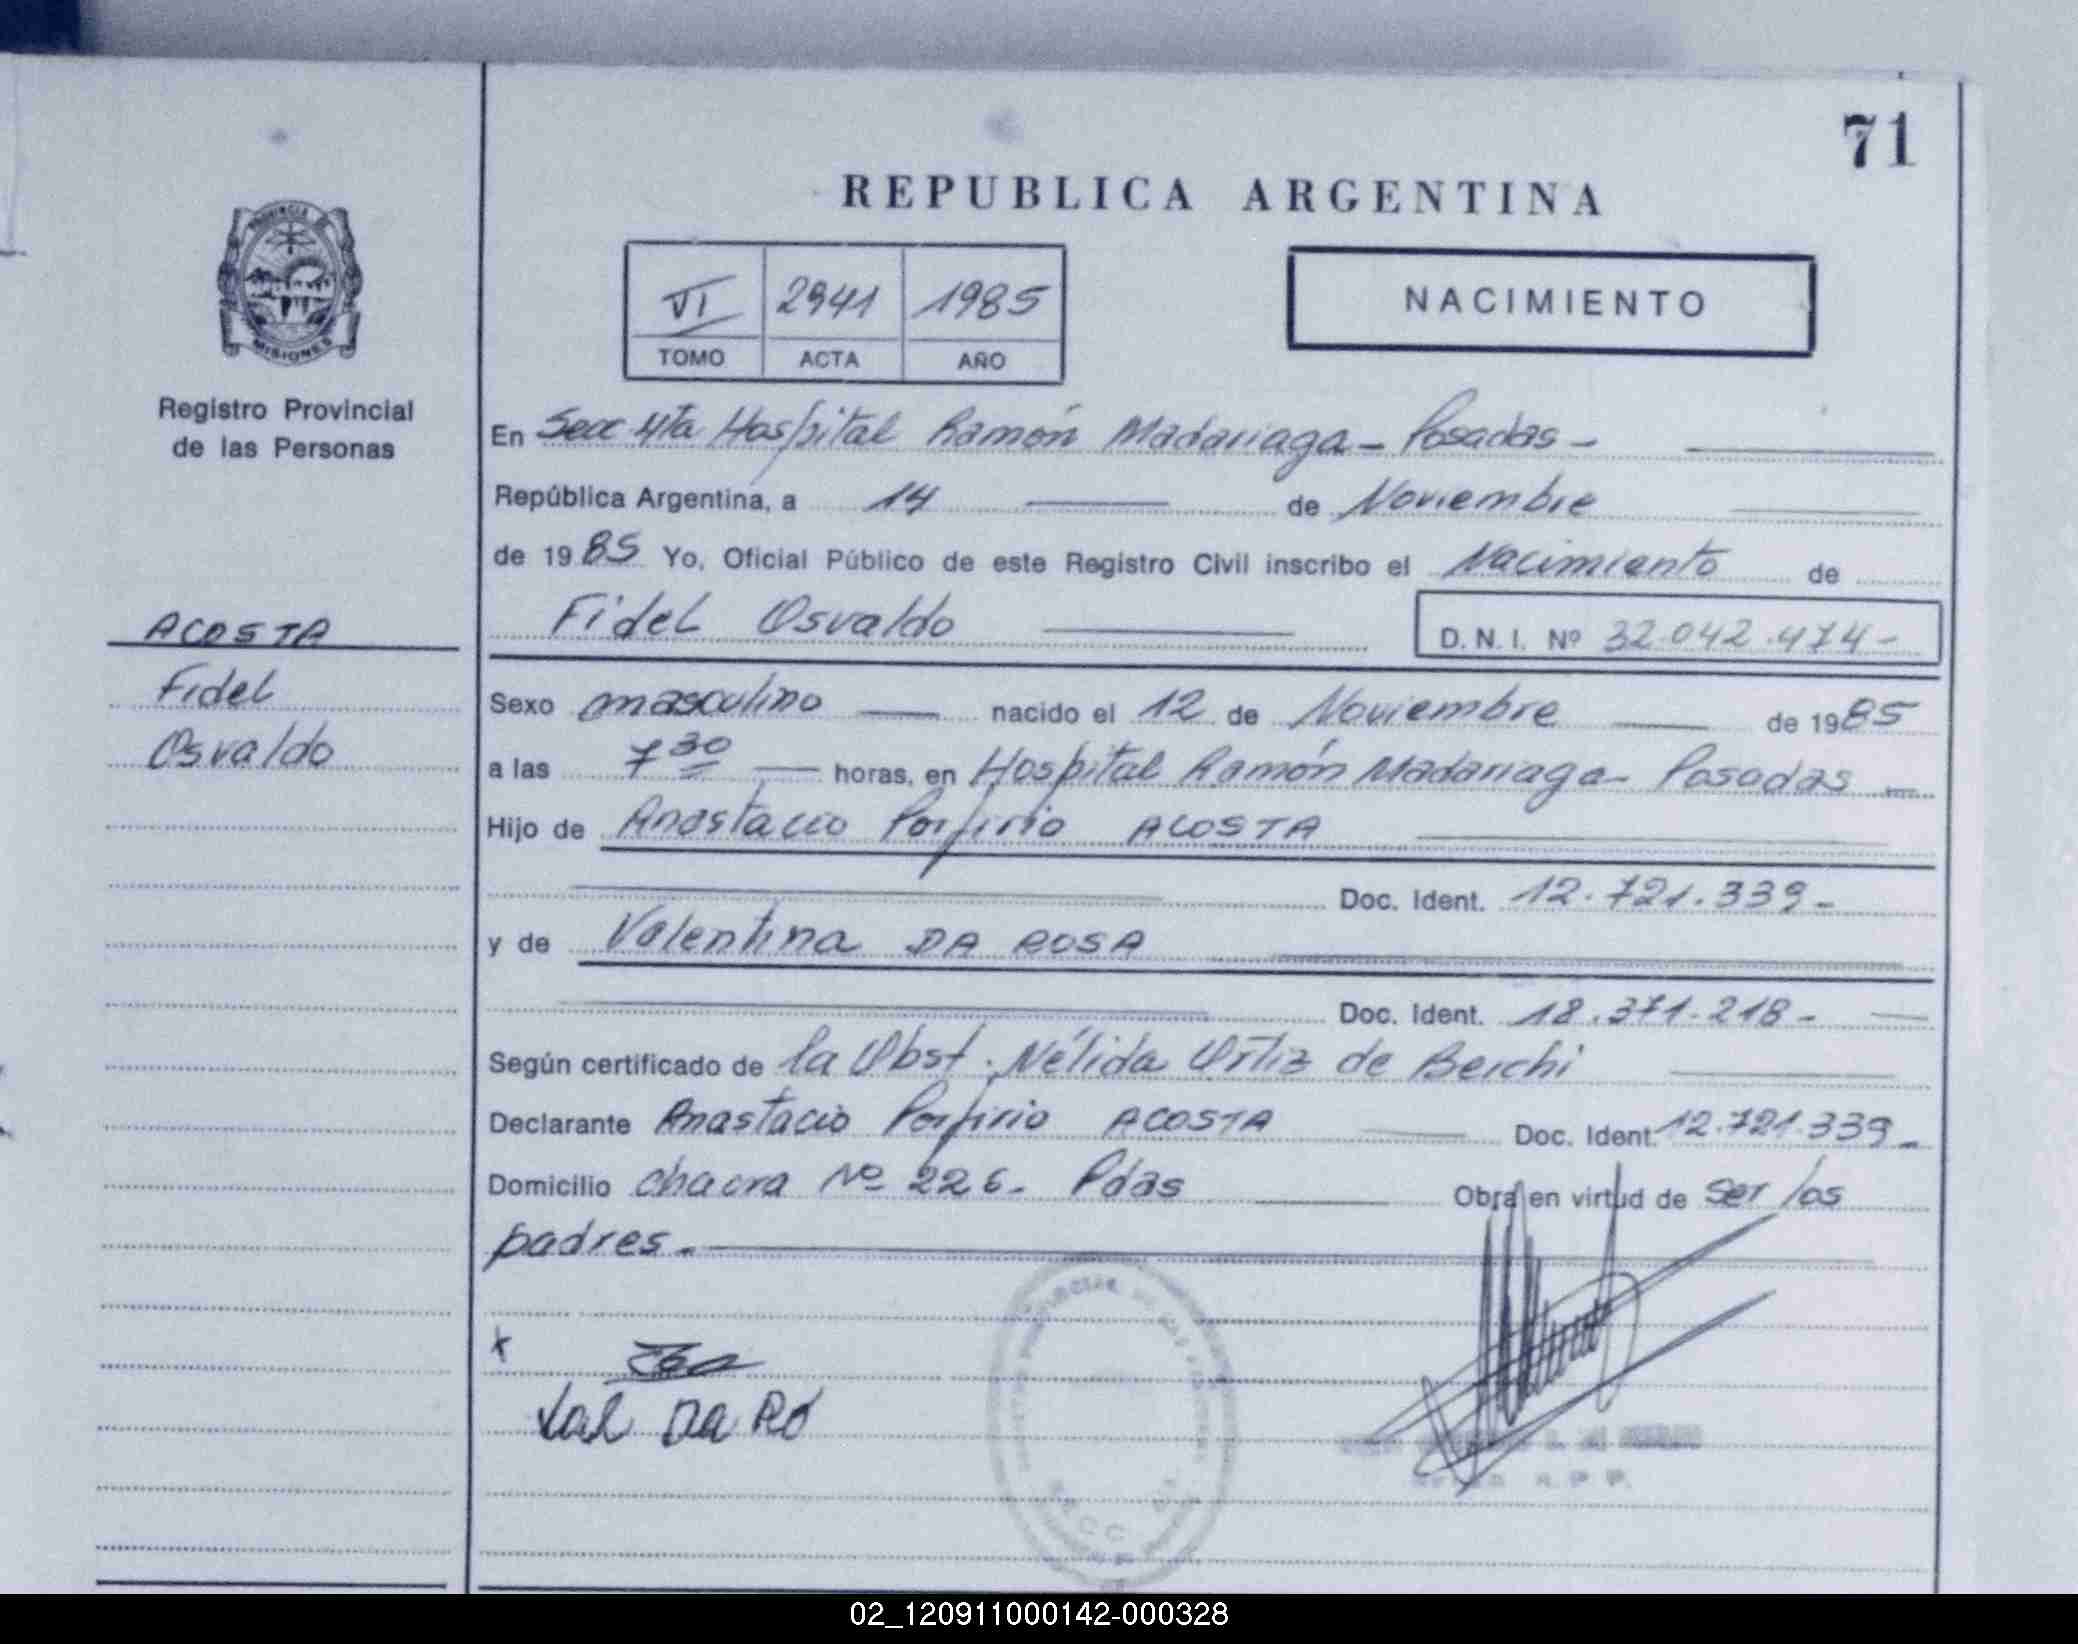 71
REPUBLICA ARGENTINA
PROVINCIA DE
MISIONES
Registro Provincial
de las Personas
VI 2941 1985
TOMO ACTA AÑO
NACIMIENTO
En Secc 4ta Hospital Ramón Madariaga - Posadas -
República Argentina, a 14 de Noviembre
de 1985 Yo, Oficial Público de este Registro Civil inscribo el Nacimiento de
Fidel Osvaldo D. N. I. Nº 32.042.474-
ACOSTA
Fidel
Osvaldo
Sexo masculino nacido el 12 de Noviembre de 1985
a las 7 30 horas, en Hospital Ramón Madariaga - Posadas
Hijo de Anastacio Porfirio ACOSTA
Doc. Ident. 12.721.339-
y de Valentina DA ROSA
Doc. Ident. 18.371.218-
Según certificado de la Obst. Nélida Ortiz de Berchi
Declarante Anastacio Porfirio ACOSTA Doc. Ident. 12.721.339-
Domicilio chacra Nº 226- Pdas Obra en virtud de ser los
padres.-
Val Da Ro
R. P. P.
02_120911000142-000328